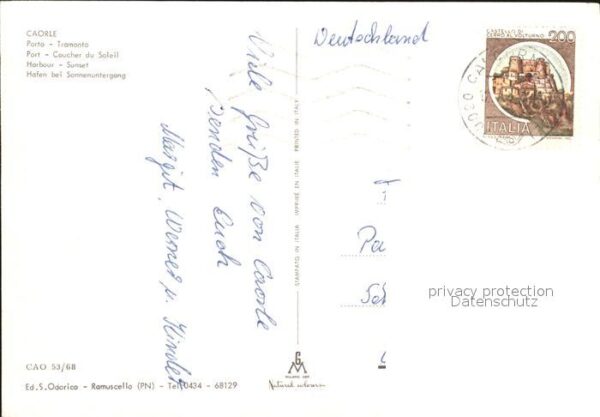 CAORLE
Porto - Tramonto
Port - Coucher du Soleil
Harbour - Sunset
Hafen bei Sonnenuntergang
Viele Grüße von Caorle
senden Euch
Margit, Werner u. Kinder
CAO 53/68
Ed. S. Odorico - Ramuscello (PN) - Tel. 0434 - 68129
STAMPATO IN ITALIA IMPRIMÉ EN ITALIE PRINTED IN ITALY
Deutschland
CASTELLO DI
CERRO AL VOLTURNO
200
ITALIA
Pa
privacy protection
Datenschutz